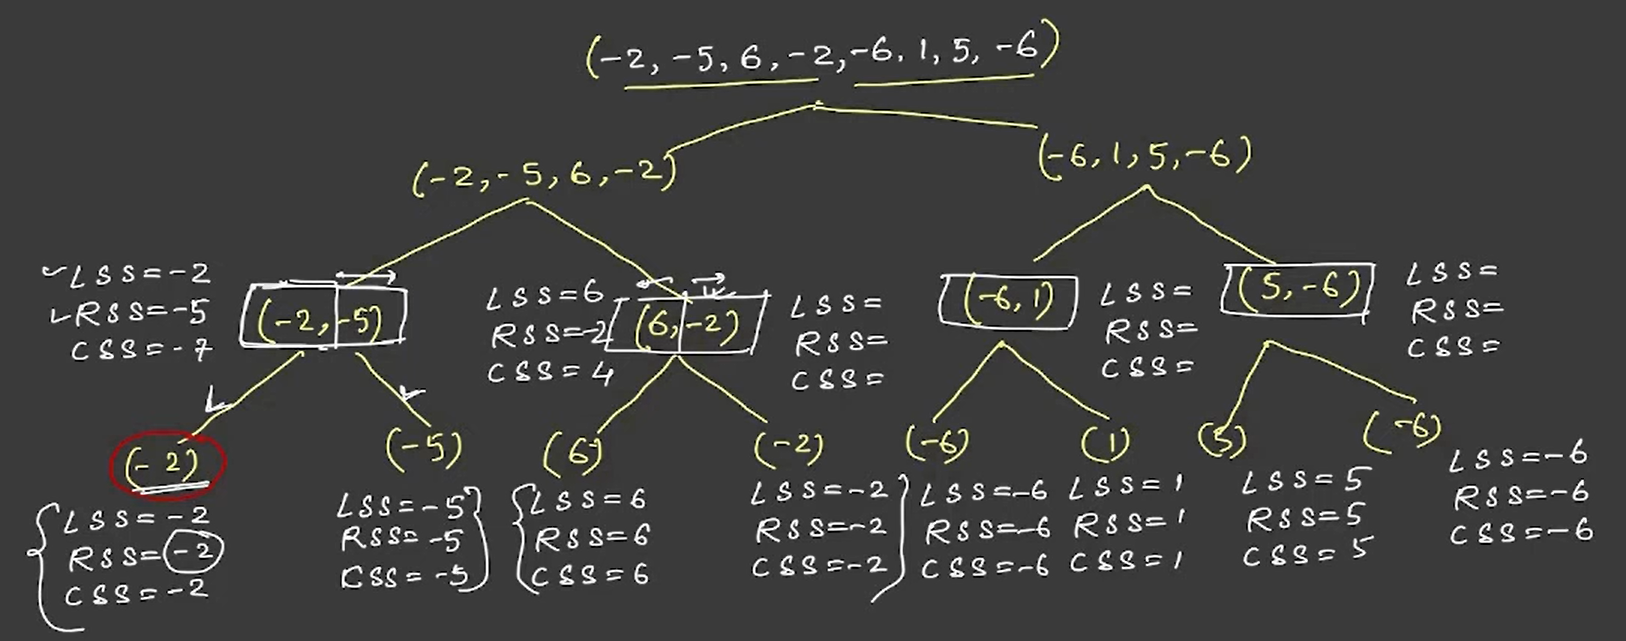 (-2, -5, 6, -2, -6, 1, 5, -6)
(-2, -5, 6, -2)
(-6, 1, 5, -6)
LSS=-2
RSS=-5
CSS=-7
(-2, -5)
LSS=6
RSS=-2
CSS=4
(6, -2)
LSS=
RSS=
CSS=
(-6, 1)
LSS=
RSS=
CSS=
(5, -6)
LSS=
RSS=
CSS=
(-2)
LSS=-2
RSS=-2
CSS=-2
(-5)
LSS=-5
RSS=-5
CSS=-5
(6)
LSS=6
RSS=6
CSS=6
(-2)
LSS=-2
RSS=-2
CSS=-2
(-6)
LSS=-6
RSS=-6
CSS=-6
(1)
LSS=1
RSS=1
CSS=1
(5)
LSS=5
RSS=5
CSS=5
(-6)
LSS=-6
RSS=-6
CSS=-6